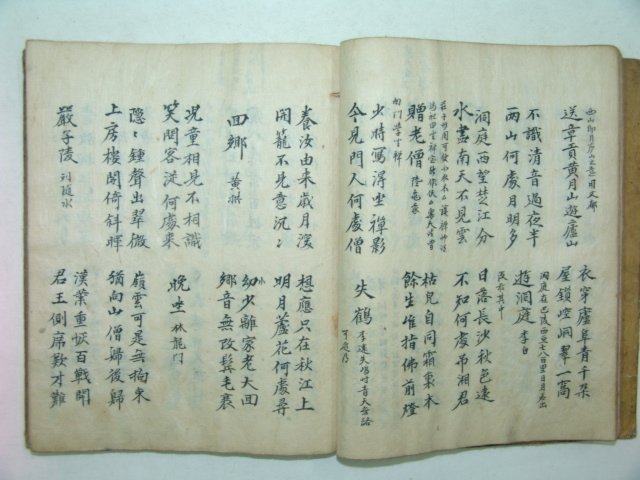 送章貢黃月山遊廬山
衣穿廬阜青千朶
屋鎖崆峒翠一窩
不識清音過夜半
兩山何處月明多
遊洞庭 李白
洞庭西望楚江分
水盡南天不見雲
日落長沙秋色遠
不知何處吊湘君
贈老僧 陸龜蒙
枯兒自同霜裏木
餘生唯指佛前燈
少時寫得坐禪影
今見門人何處僧
失鶴 李遠
養汝由來歲月深
開籠不見意沉〻
想應只在秋江上
明月蘆花何處尋
回鄉 黃拱
幼少離家老大回
鄉音無改鬢毛衰
况童相見不相識
笑問客從何處來
晚坐 林龍門
隱〻鍾聲出翠微
上房樓閣倚斜暉
嶺雲可是無拘束
猶向山僧歸後歸
嚴子陵
漢業重恢百戰間
君王側席歎才難